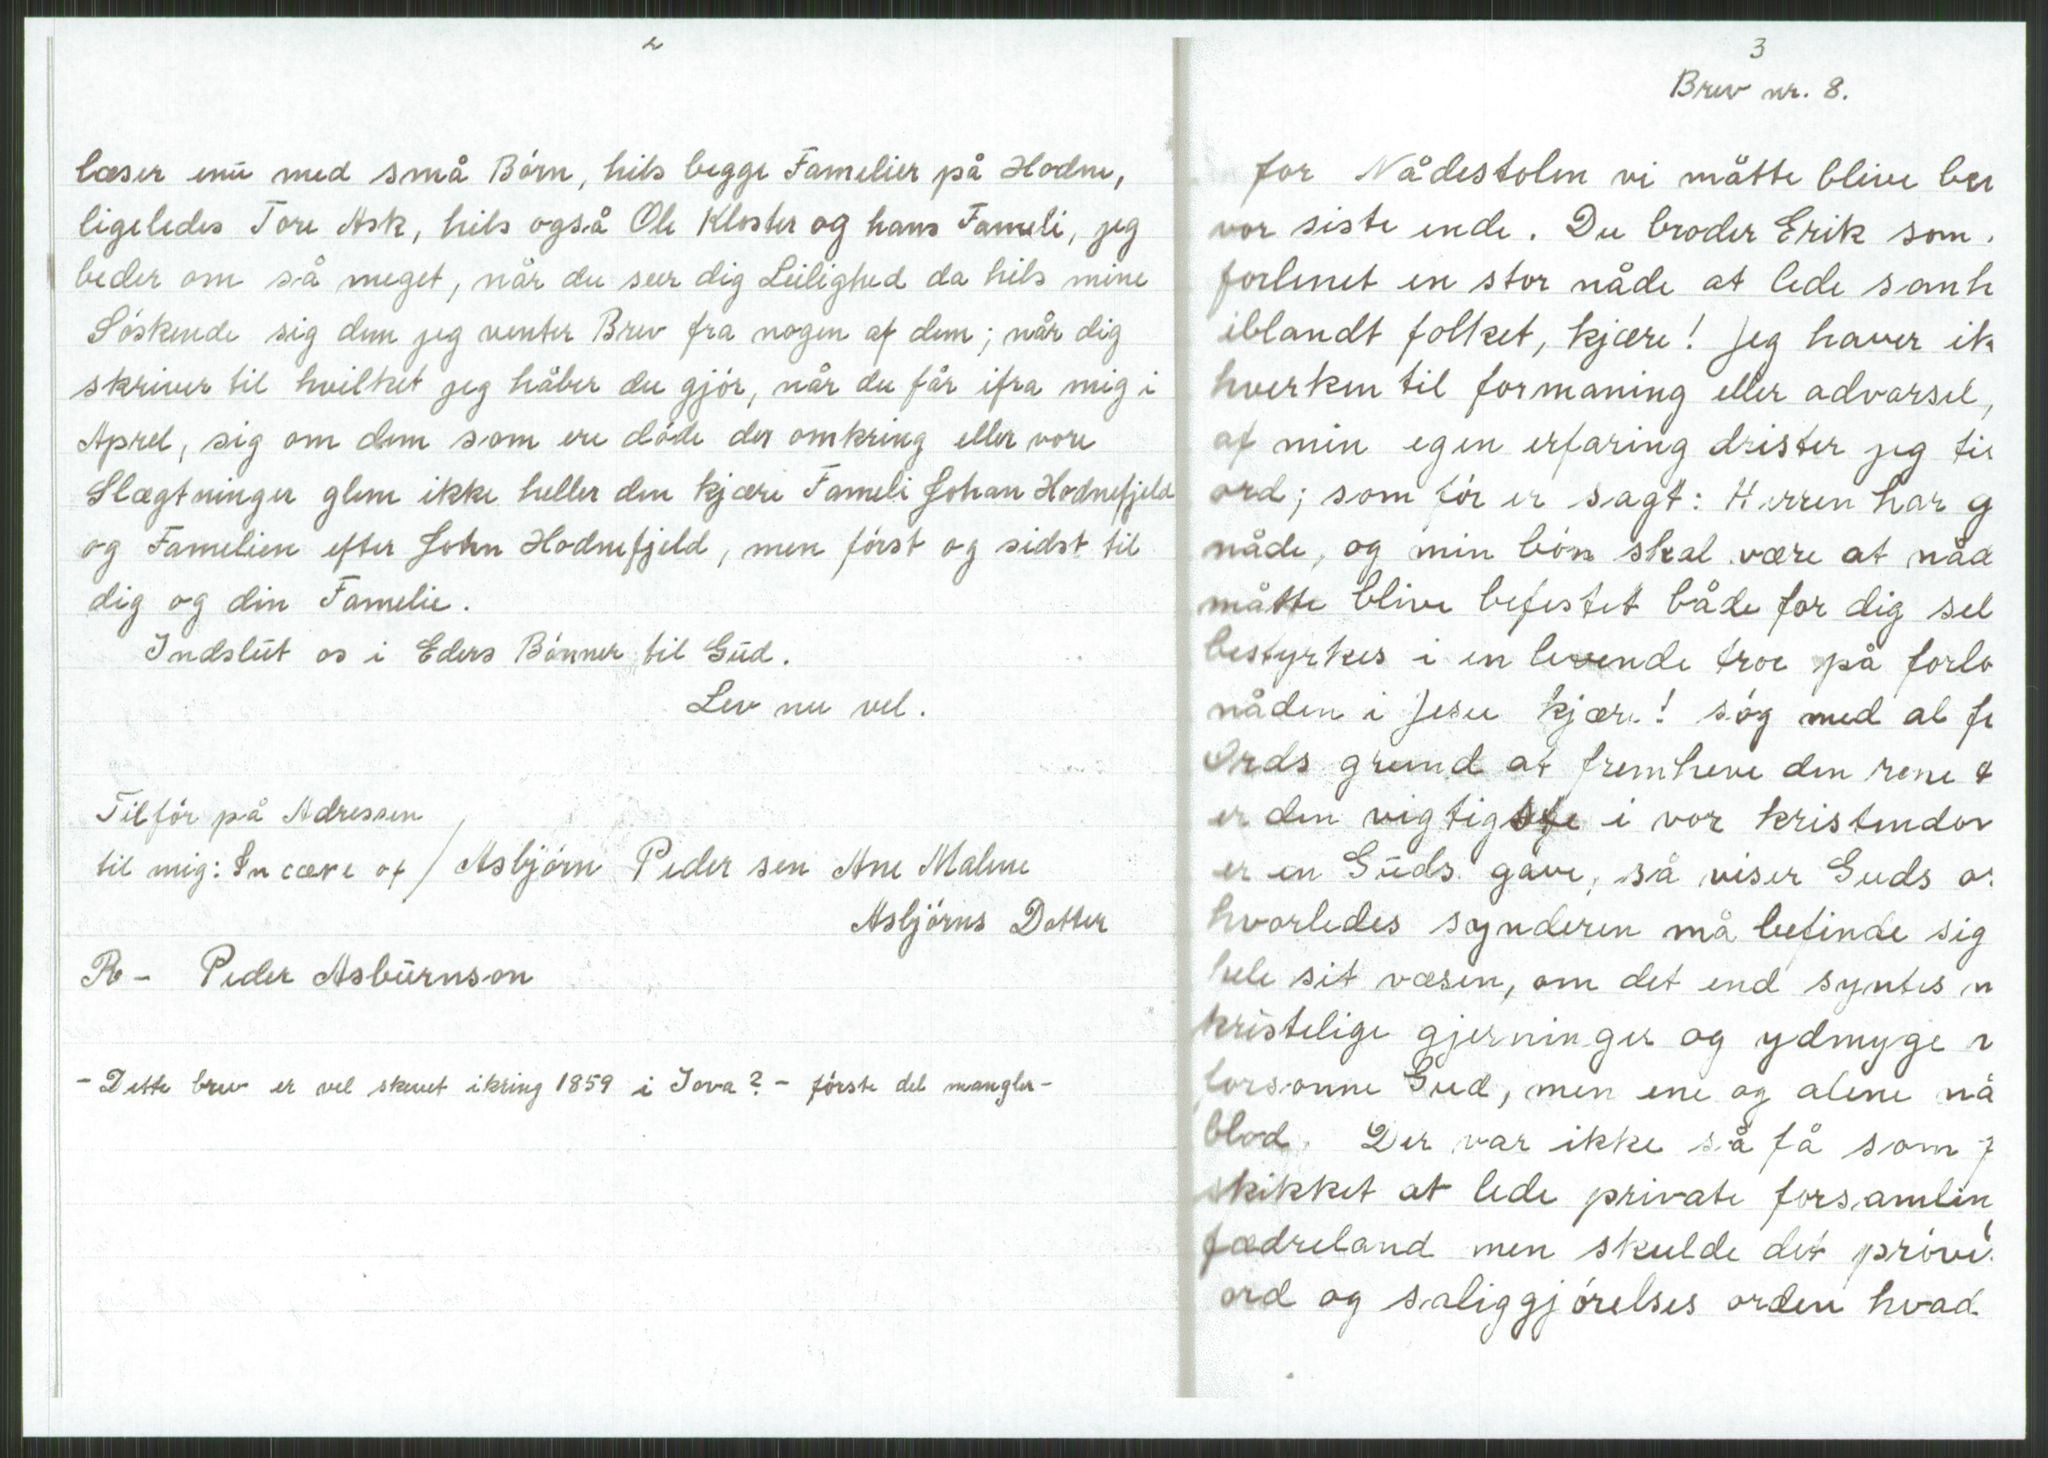 2
læser enū med små Börn, hils begge Famelier på Hodne,
ligeledes Tore Ask, hils også Ole Kloster og hans Fameli, jeg
beder om så meget, når du seer dig Leilighed da hils mine
Söskende sig dem jeg venter Brev fra nogen af dem; når dig
skriver til hvilket jeg håber du gjör, når du får ifra mig i
Aprel, sig om dem som ere döde der omkring eller vore
Slægtninger glem ikke heller den kjære Fameli Johan Hodnefjeld
og Famelien efter John Hodnefjeld, men först og sidst til
dig og din Famelie.
Indslūt os i Eders Bönner til Gūd.
Lev nu vel.
Tilför på Adressen
til mig: In cære of / Asbjörn Peder sen Ane Malene
Asbjörns Dotter
Peder Asbūrnson
- Dette brev er vel skrevet ikring 1859 i Iova? - förste del mangler -
3
Brev nr. 8.
for Nådestolen vi måtte blive ber
vor siste ende. Du broder Erik som
forlenet en stor nåde at lede samh
iblandt folket, kjære! Jeg haver ik
hverken til formaning eller advarsel,
af min egen erfaring drister jeg til
ord; som för er sagt: Herren har g
nåde, og min bön skal være at nåd
måtte blive befestet både for dig sel
bestyrkes i en levende troe på forlo
nåden i Jesu kjære! søg med al fl
Ords grund at fremheve den rene
er den vigtigste i vor kristendom
er en Gūds gave, så viser Guds o
hvorledes synderen må befinde sig
hele sit væsen, om det end syntes n
kristelige gjerninger og ydmyge
forsonne Gud, men ene og alene nå
blod. Der var ikke så få som f
skikket at lede private forsamlin
fædreland men skulde det pröve
ord og saliggjörelses orden hvad